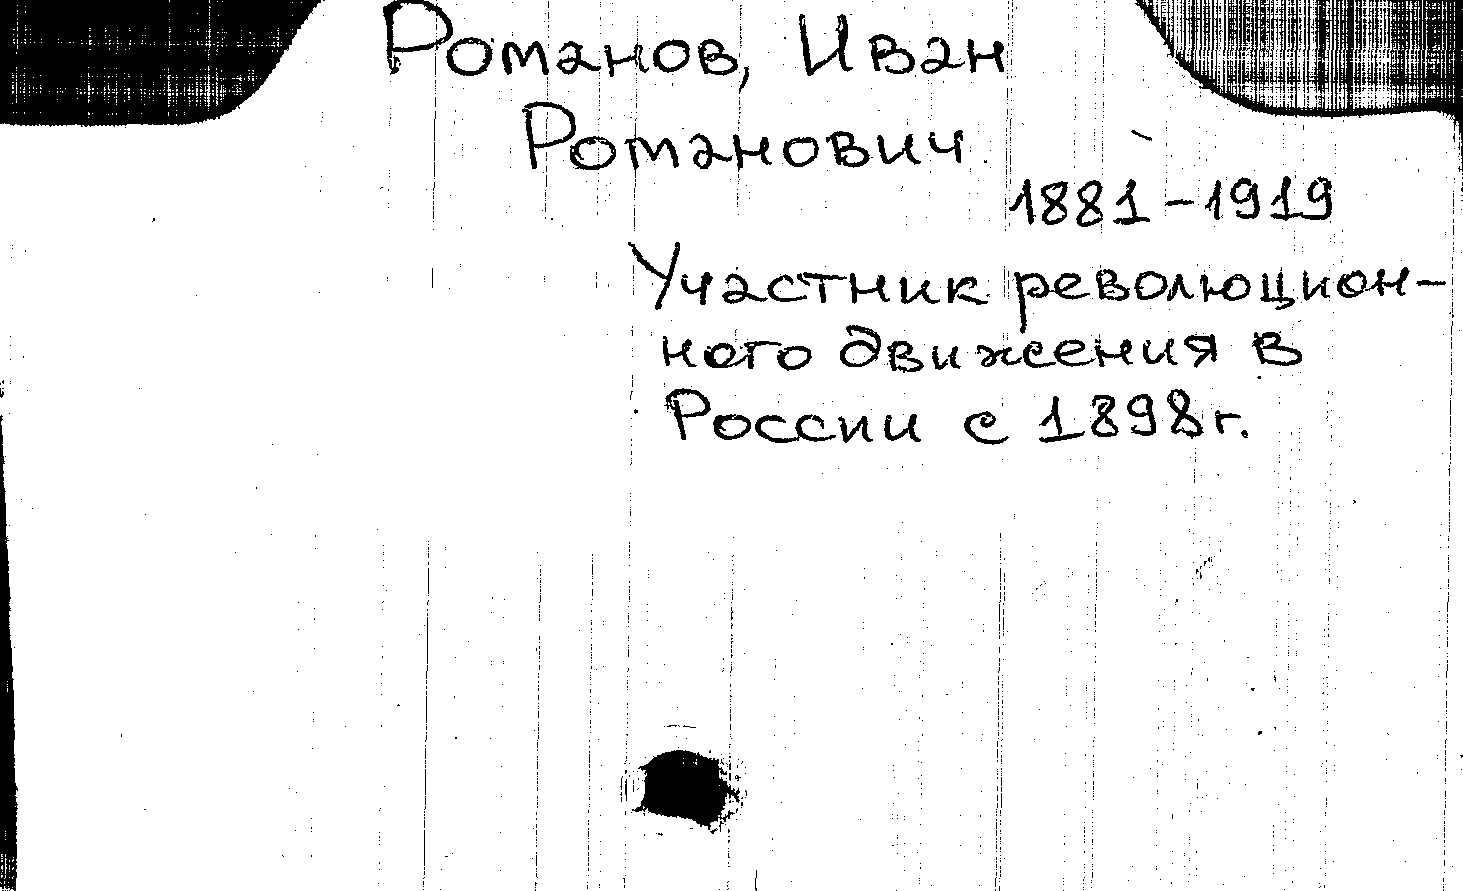 Романов, Иван
Романович
1881-1919
Участник революцион-
ного движения в
России с 1898г.